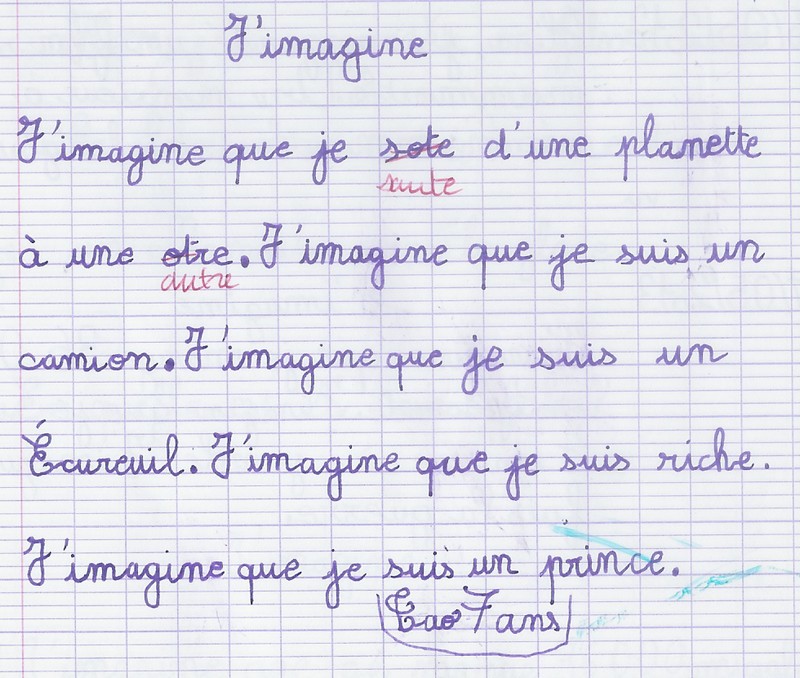 J'imagine
J'imagine que je sote d'une planette
saute
à une otre. J'imagine que je suis un
autre
camion. J'imagine que je suis un
Écureuil. J'imagine que je suis riche.
J'imagine que je suis un prince.
7 ans